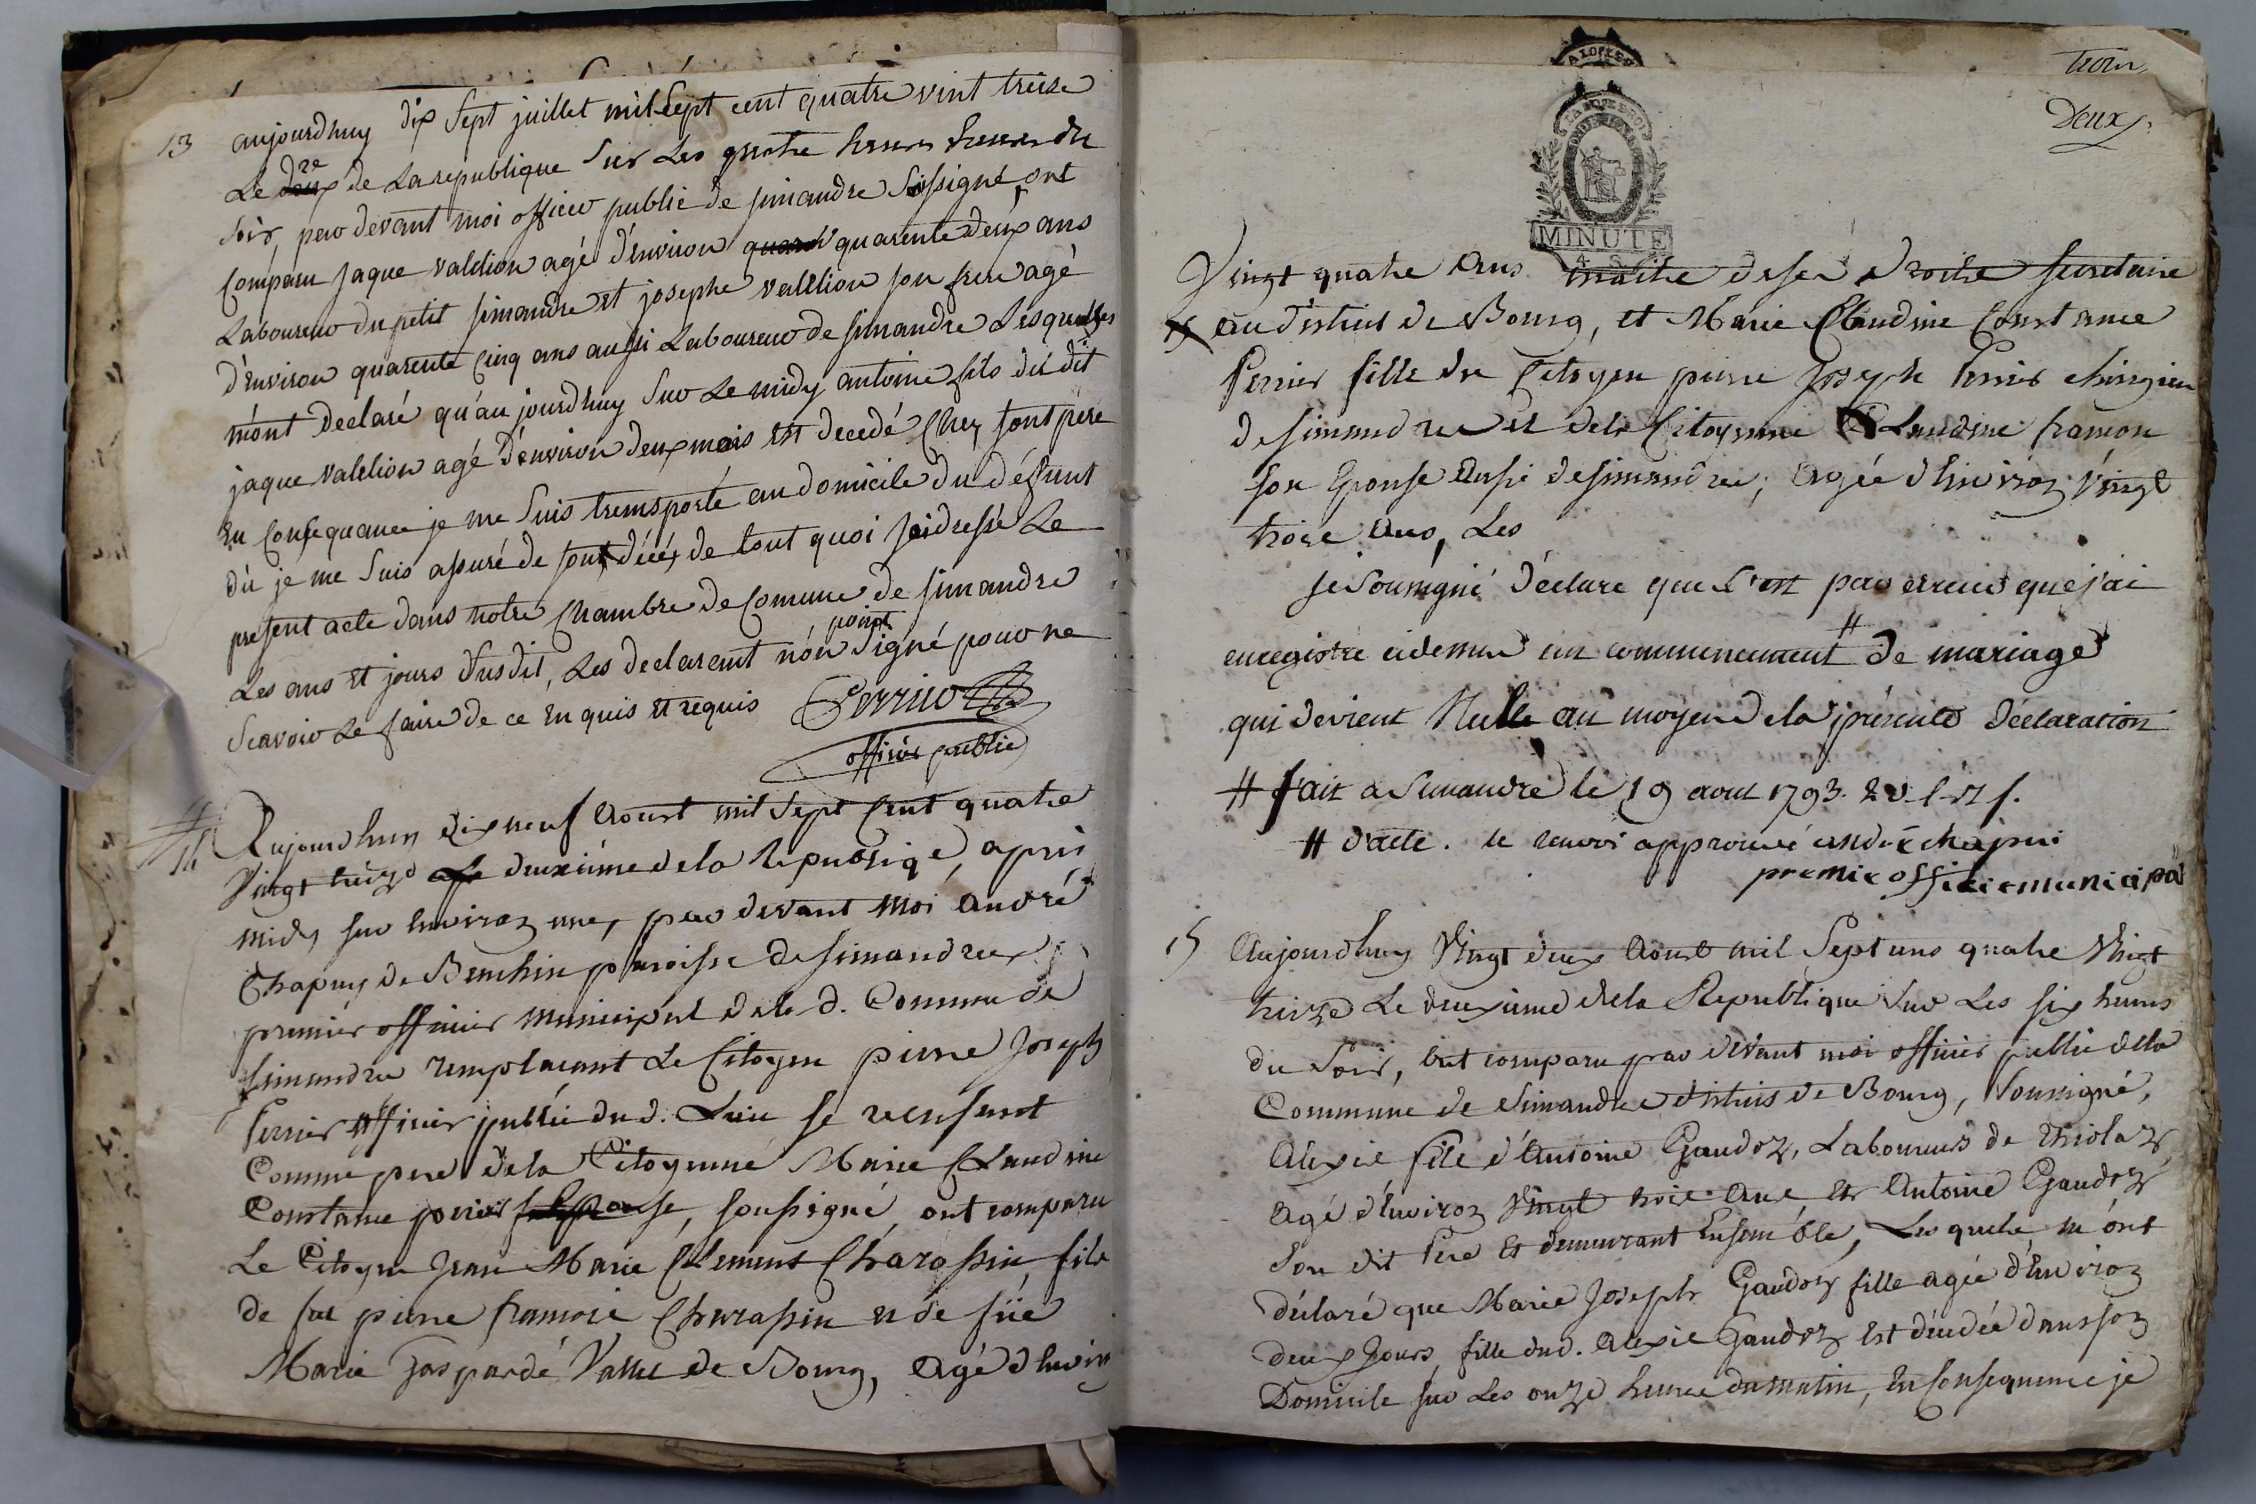 13
aujourdhuy dix sept juillet mil sept cent quatre vint treise
Le deux de La republique sur Les quatre heures heures du
re
soir, par devant moi officier public de simandre sussigné, ont
comparu jaque valelion agé d'environ quarent quarente deux ans
Laboureur du petit simandre et josephe valelion son frere agé
d'environ quarente cinq ans aussi Laboureur de simandre Lesquelles
m'ont declaré qu'au jourdhuy sur Le midy antoine fils du dit
jaque valelion agé d'environ deux mois est decedé chez sont pere
En consequance je me suis transporté au domicile du défunt
du je me suis assuré de sont décéz de tout quoi jai dressé Le
present acte dans notre chambre de comune de simandre
point
Les ans et jours susdit, Les declarant nón signé pour ne
scavoir Le faire de ce Enquis et requis
Perrier
officier public
14
Aujourdhuy dix neuf Aoust mil sept Cent quatre
Vingt treize deuxième de la Republiqe, apres
midy sur Environ une, par devant Moi André
Chapuy de Banchin paroisse de simandre
premier officier Municipal de la d. Commune de
simandre remplacant Le Citoyen pierre Joseph
Perrier officier public dud. Lieu se recusant
Comme pere de la Citoyenne Marie Claudine
Constance perier, soussigné, ont comparu
Le Citoyen Jean Marie Clement Charassin fils
de feu pierre francois Charassin et de füe
Marie Gasparde Vallet de Bourg, Agé d'Environ
trois
Deux
MINUTE
4 S.
Vingt quatre Ans maitre de ses droits secretaire
au district de Bourg, et Marie Claudine Constance
Perrier fille du Citoyen pierre Joseph Perrier chirugien
de simandre et dela Citoyenne Claudine
son Epouse Aussi de simandre; Agée d'Environ Vingt
troise Ans, Les
je soussigné déclare que c'est par erreur que j'ai
enregistré cidessus un commencement # de mariage
qui devient Nulle au moyen de la présente déclaration
# fait a Simandre le 19 aout 1793.
# d'acte. le renvoi approuvé andré chapui
premie officie municipal
15
Aujourdhuy Vingt deux Aoust mil Sept cens quatre Vingt
treize Le deuxième dela République sur Les six heures
du Soir, ont comparu par devant moi officier public dela
Commune de Simandre district de Bourg, soussigné,
Alexis fils d'Antoine Gaudoz, Laboureurs de Thiolaz
Agé d'Environ Vingt trois Ans et Antoine Gaudoz
son dit Pere Et demeurant Ensemble, Lesquels m'ónt
déclaré que Marie Joseph Gaudoz fille agée d'Environ
deux Jours, fille dud. Alexis Gaudoz Est décédée dans son
Domicile sur Les onze heures du matin, En Consequence je